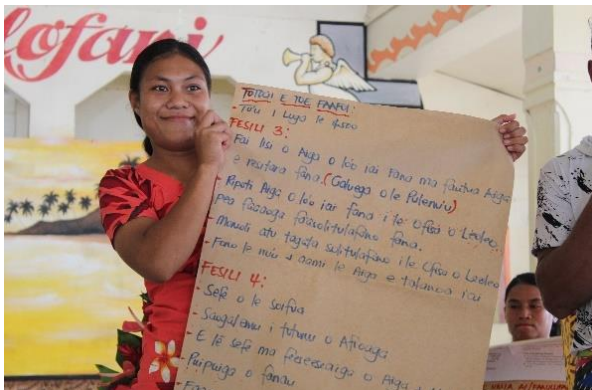 lofani
TOTOGI E TOE FAAFOI:
- Tuu i luga le
FESILI 3:
- Fai lisi o Aiga o loo iai fana ma fautua Aiga
e resitara fana. (Galuega o le Pulenuu)
- Ripoti Aiga o loo iai fana i le Ofisa o Leoleo
pea faaaoga faasolitulafono fana.
- Momoli atu tagata solitulafono i le Ofisa o Leoleo
- Fono le nuu e aami le Aiga e talanoa iai
FESILI 4:
- Sefe o le soifua
- Saogalemu i totonu o Afioaga
- E lē sefe ma Aiga
- Puipuiga o fanau